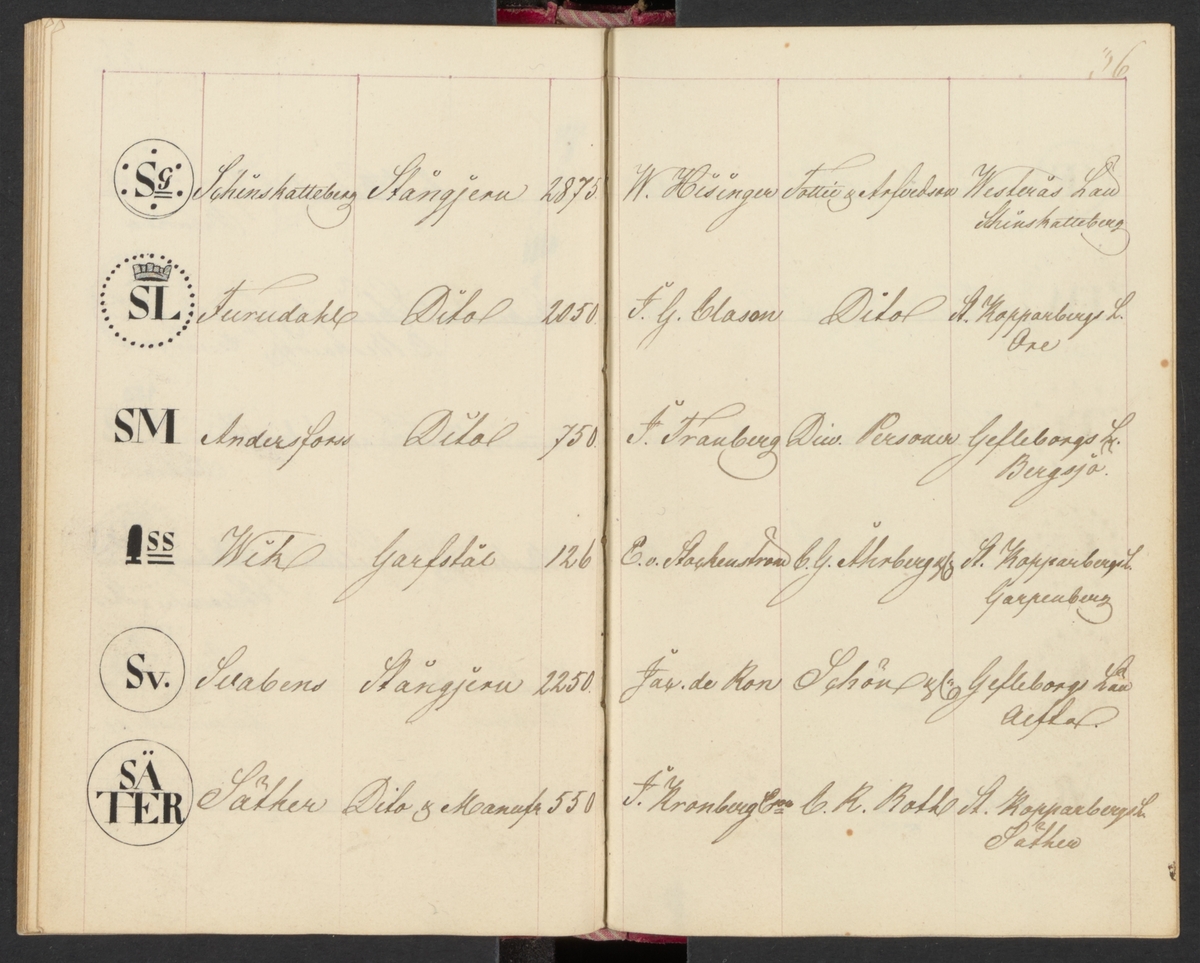 36
Sg Schinskatteberg Stångjern 2875. W. Hisinger Tottie & Arfvidson Westerås Län
Skinskatteberg
SL Furudahl Dito 2050 J. G. Clason Dito St. Kopparbergs L.
Ore
SM Andersforss Dito 750. J. Tranberg Div. Personer Gefleborgs L.
Bergsjö.
1 ss Wik Garfstål 126 E. v. Stockenström C. G. Åhrberg & St. Kopparbergs L.
Garpenberg
Sv. Svabens Stångjern 2250. Jac. de Ron Schön & Gefleborgs Län
Alfta.
SÄ
TER Säther Dito & Manufr 550 J. Kronberg C. R. Roth St. Kopparbergs L.
Säther